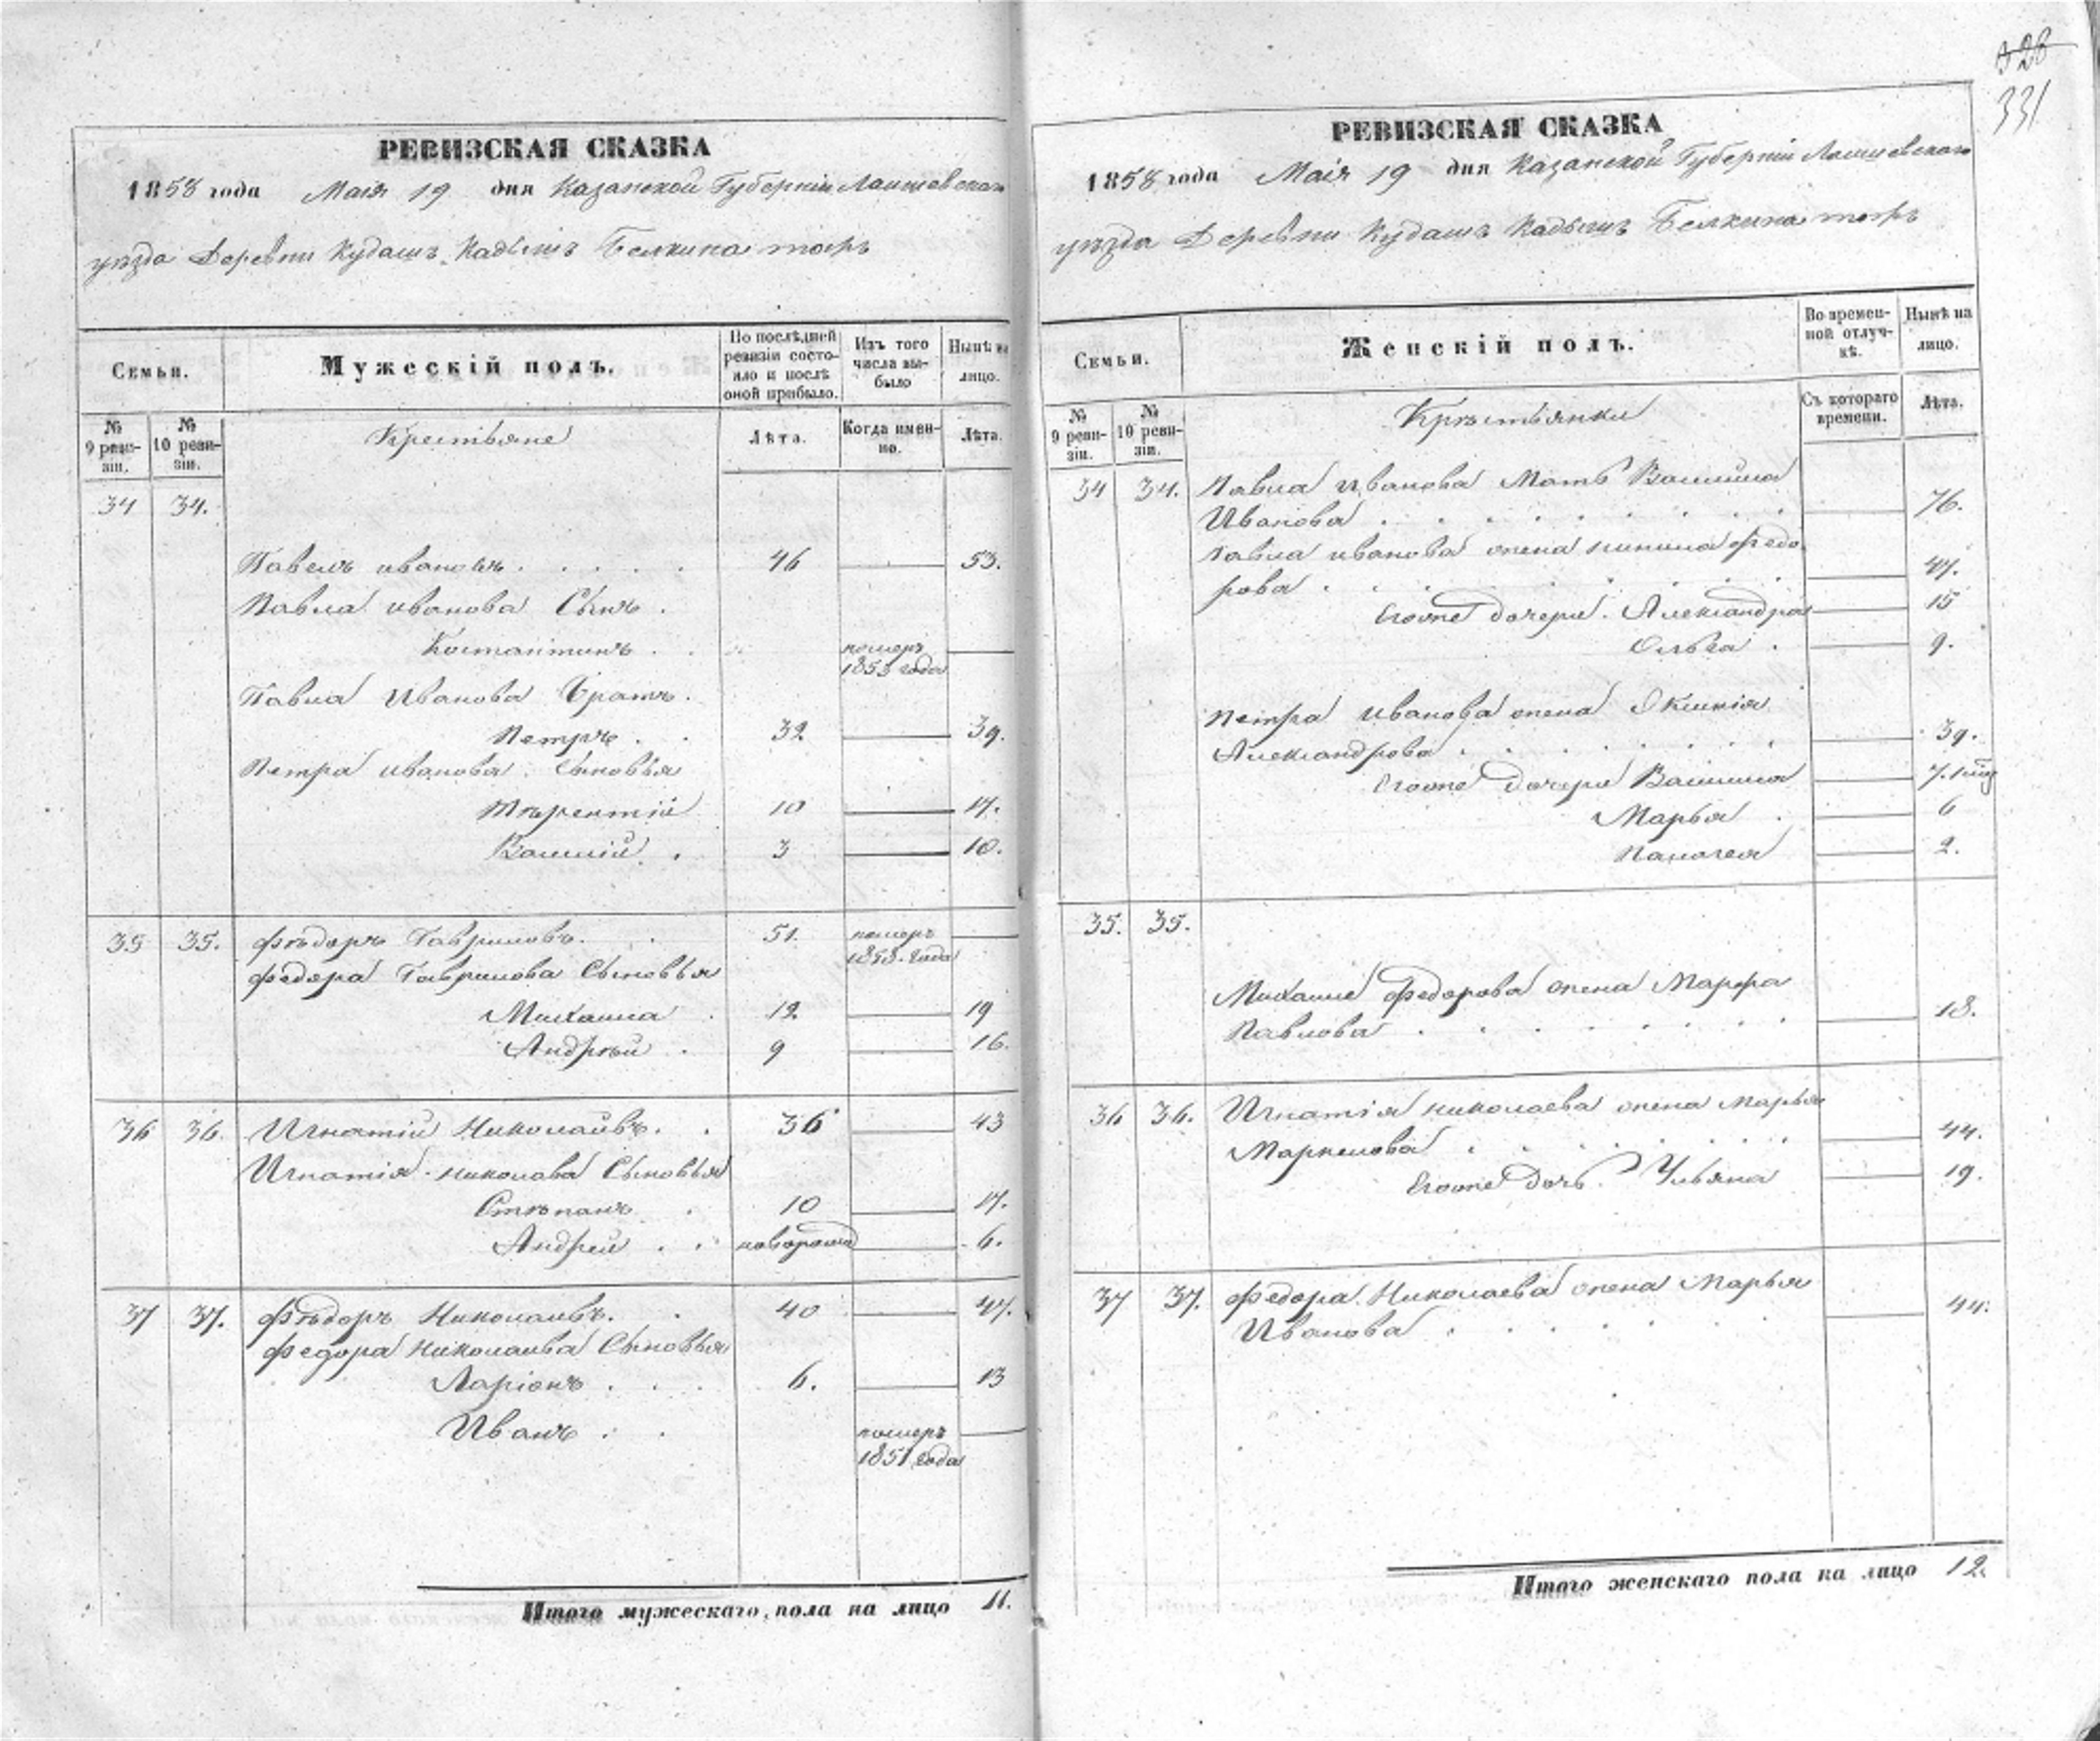 328
331
РЕВИЗСКАЯ СКАЗКА
1858 года Маія 19 дня Казанской Губерніи Лаишевскаго
уѣзда Деревни Кудашъ Кадышъ Белкина тожъ
Семьи.
Мужескій полъ.
По послѣдней ревизіи состояло и послѣ оной прибыло.
Изъ того числа выбыло
Нынѣ на лицо.
№ 9 ревизіи.
№ 10 ревизіи.
Крестьяне
Лѣта.
Когда именно.
Лѣта.
34 34.
Павелъ Ивановъ . . . . . 46 53.
Павла Иванова Сынъ .
Костантинъ . . померъ
1853 года
Павла Иванова Братъ.
Петръ . . 32 39.
Петра Иванова Сыновья
Терентій 10 17.
Василій . 3 10.
35 35. Ѳедоръ Гавриловъ. . 51. померъ
1858. года
Ѳедора Гаврилова Сыновья
Михаила . 12 19
Андрей . 9 16.
36 36. Игнатій Николаевъ. . 36 43
Игнатія Николаева Сыновья
Степанъ . 10 17.
Андрей . . 6.
37 37. Ѳедоръ Николаевъ. . 40 47.
Федора Николаева Сыновья
Ларіонъ . . . 6. 13
Иванъ . . померъ
1851 года
Итого мужескаго, пола на лицо 11.
РЕВИЗСКАЯ СКАЗКА
1858 года Маія 19 дня Казанской Губерніи Лаишевскаго
уѣзда Деревни Кудашъ Кадышъ Белкина тожъ
Семьи.
Женскій полъ.
Во временной отлучкѣ.
Нынѣ на лицо.
№ 9 ревизіи.
№ 10 ревизіи.
Крестьянки
Съ котораго времени.
Лѣта.
34 34. Павла Иванова Мать Василиса
Иванова . . . . . . . 76.
Павла Иванова жена Федо
рова . . . . . . 47.
Егоже дочери. Александра 15
Ольга . 9.
Петра Иванова жена
Александрова . . . . . . 39.
Егоже дочери Василиса
Марья . 6
Палагея 2.
35. 35.
Михаила Федорова жена Марфа
Павлова . . . . . . 18.
36 36. Игнатія Николаева жена Марья
Маркелова . . . . . . 44.
Егоже дочь. Ульяна 19.
37 37. Федора Николаева жена Марья
Иванова . . . . . . 44.
Итого женскаго пола на лицо 12.